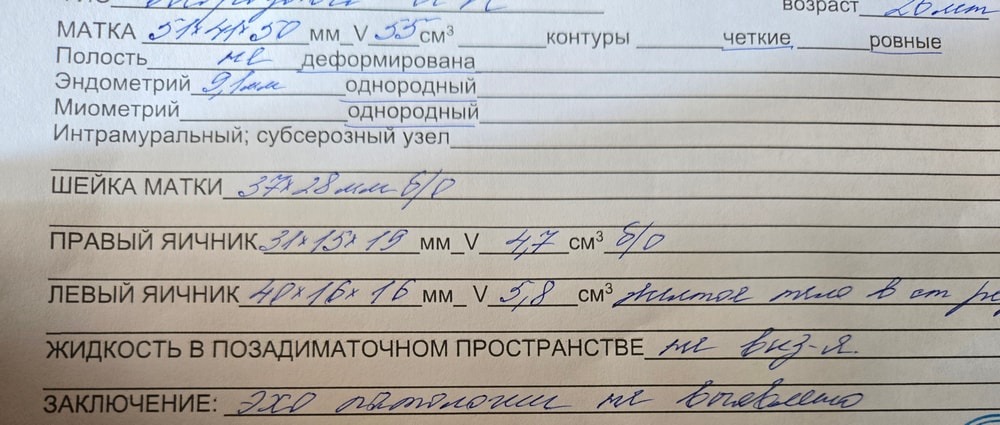 возраст 26 лет
МАТКА 51×41×50 мм_V 55 см³ контуры четкие ровные
Полость не деформирована
Эндометрий 9,1мм однородный
Миометрий однородный
Интрамуральный; субсерозный узел
ШЕЙКА МАТКИ 37×28мм б/о
ПРАВЫЙ ЯИЧНИК 31×15×19 мм_V 4,7 см³ б/о
ЛЕВЫЙ ЯИЧНИК 40×16×16 мм_ V 5,8 см³ желтое тело в ст
ЖИДКОСТЬ В ПОЗАДИМАТОЧНОМ ПРОСТРАНСТВЕ не виз-я
ЗАКЛЮЧЕНИЕ: эхо патологии не выявлено